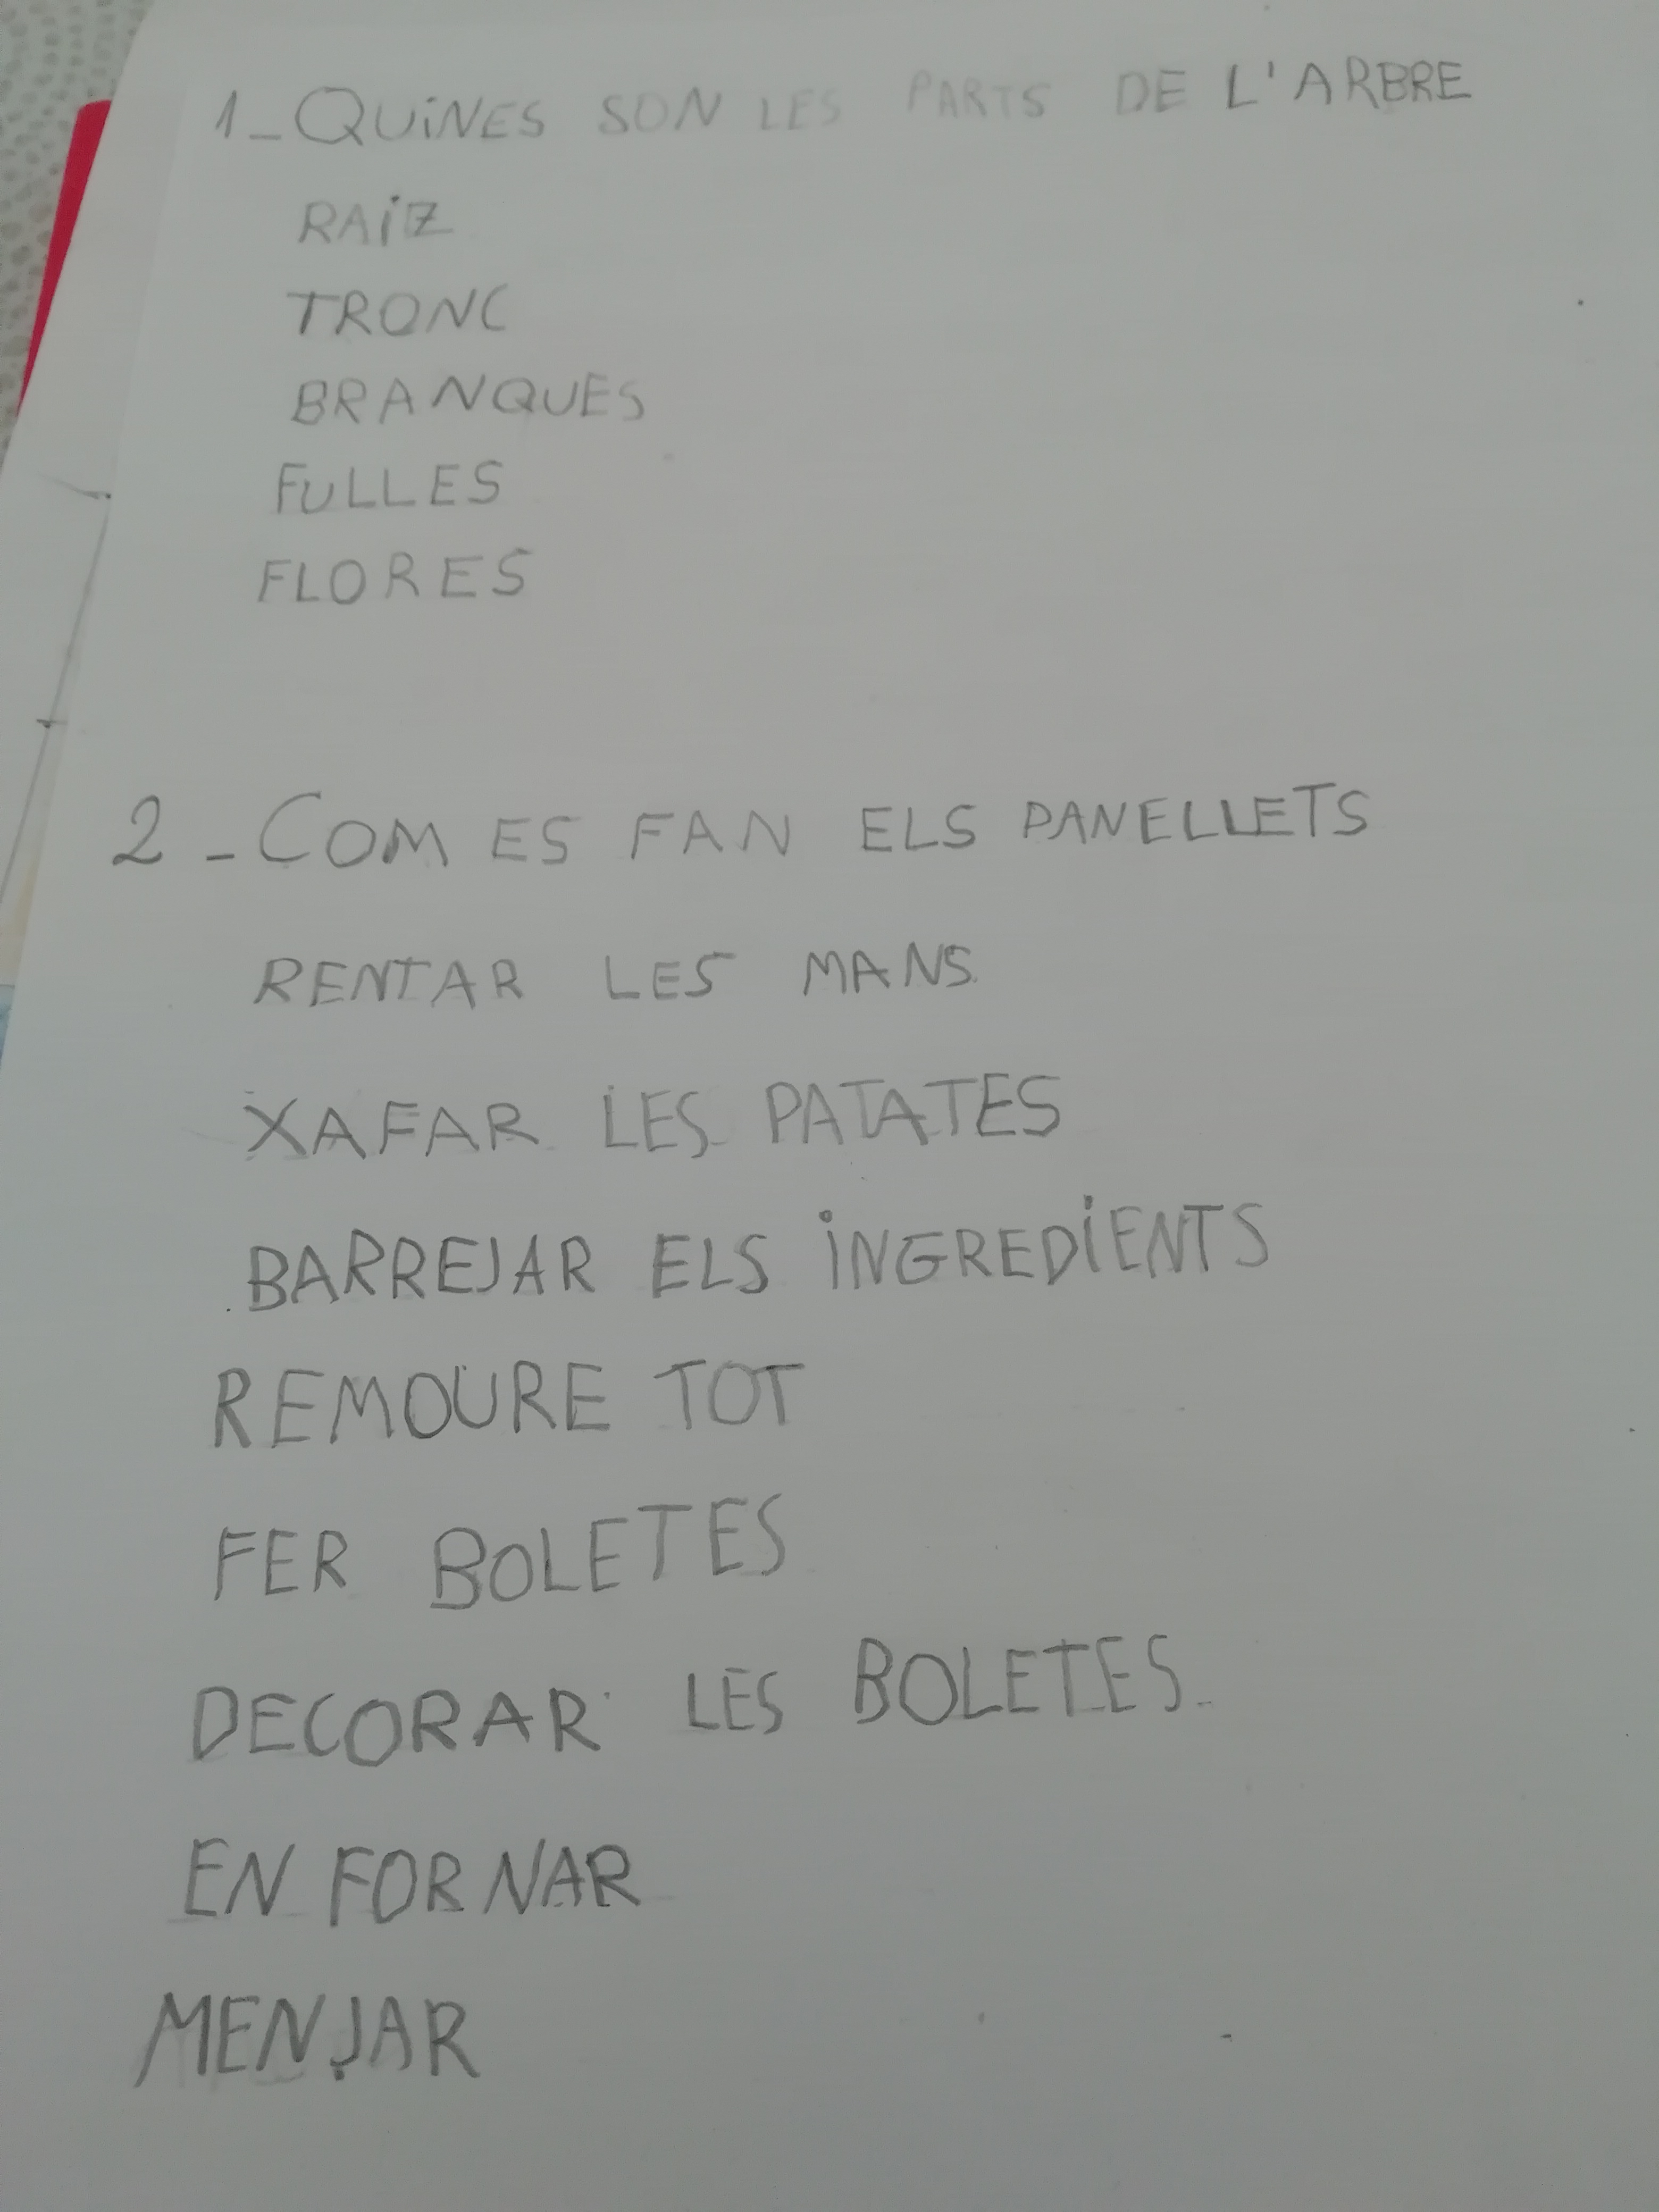 1_QUiNES SON LES PARTS DE L'ARBRE
RAiZ
TRONC
BRANQUES
FULLES
FLORES
2_COM ES FAN ELS PANELLETS
RENTAR LES MANS.
XAFAR LES PATATES
BARREJAR ELS iNGREDiENTS
REMOURE TOT
FER BOLETES
DECORAR LES BOLETES.
EN FORNAR
MENJAR